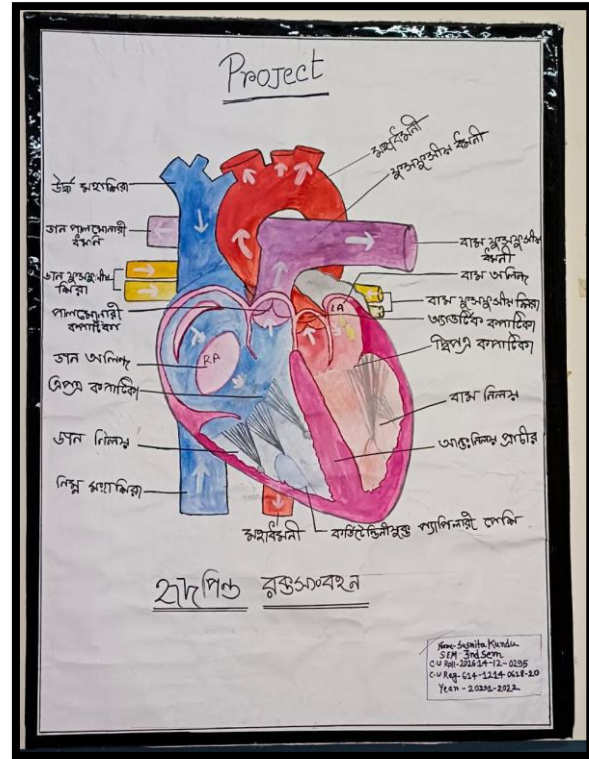 Project
মহাধমনী
ফুসফুসীয় ধমনী
উর্দ্ধ মহাশিরা
ডান পালমোনারী
ধমনি
ডান ফুসফুসীয়
শিরা
পালমোনারী
কপাটিকা
ডান অলিন্দ
ত্রিপত্র কপাটিকা
ডান নিলয়
নিম্ন মহাশিরা
বাম ফুসফুসীয়
ধমনী
বাম অলিন্দ
বাম ফুসফুসীয় শিরা
অ্যাওর্টিক কপাটিকা
দ্বিপত্র কপাটিকা
বাম নিলয়
আন্তঃনিলয় প্রাচীর
RA
LA
মহাধমনী
কর্ডিটেন্ডিনীযুক্ত প্যাপিলারী পেশি
হৃদপিন্ড রক্তসংবহন
Name-Susmita Kundu
SEM-3rd Sem
C.U Roll-202614-12-0295
C.U Reg-614-1214-0618-20
Year-20201-2022